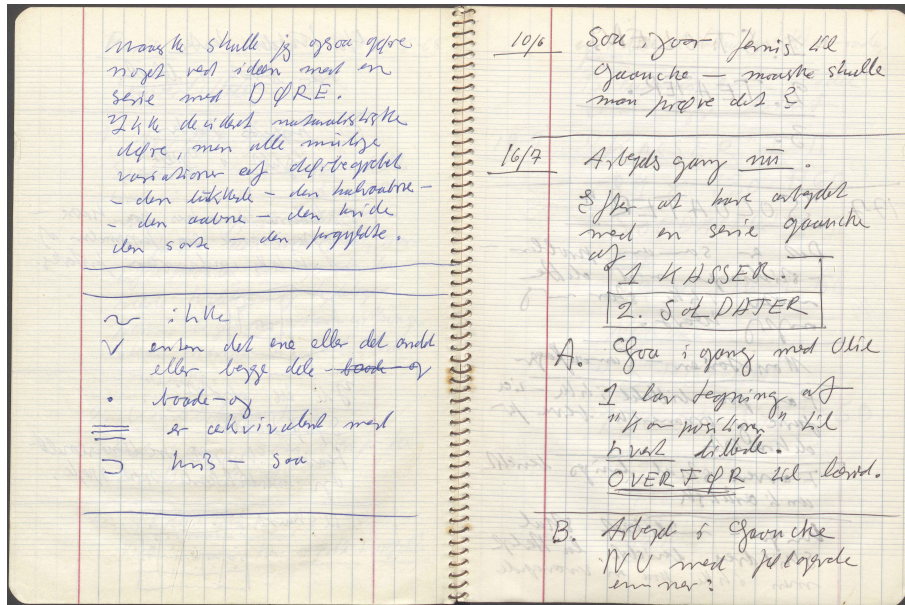 maaske skulle jeg ogsaa gøre
noget ved ideen med en
serie med DØRE.
Ikke decideret naturalistiske
døre, men alle mulige
variationer af dørbegrebet
- den lukkede - den halvaabne -
- den aabne - den hvide
den sorte - den forgyldte.
~ ikke
v enten det ene eller det andet
eller begge dele - baade-og
• baade-og
≡ er ækvivalent med
⊃ hvis - saa
10/6 Saa igaar fernis til
gouache - maaske skulle
man prøve det?
16/7 Arbejds gang nu.
Efter at have arbejdet
med en serie gouache
af
1 KASSER.
2. SOLDATER
A. Gaa i gang med Olie
1 lav tegning af
"Komposition" til
hvert billede.
OVERFØR til lærred.
B. Arbejd i Gouache
NU med følgende
emner: